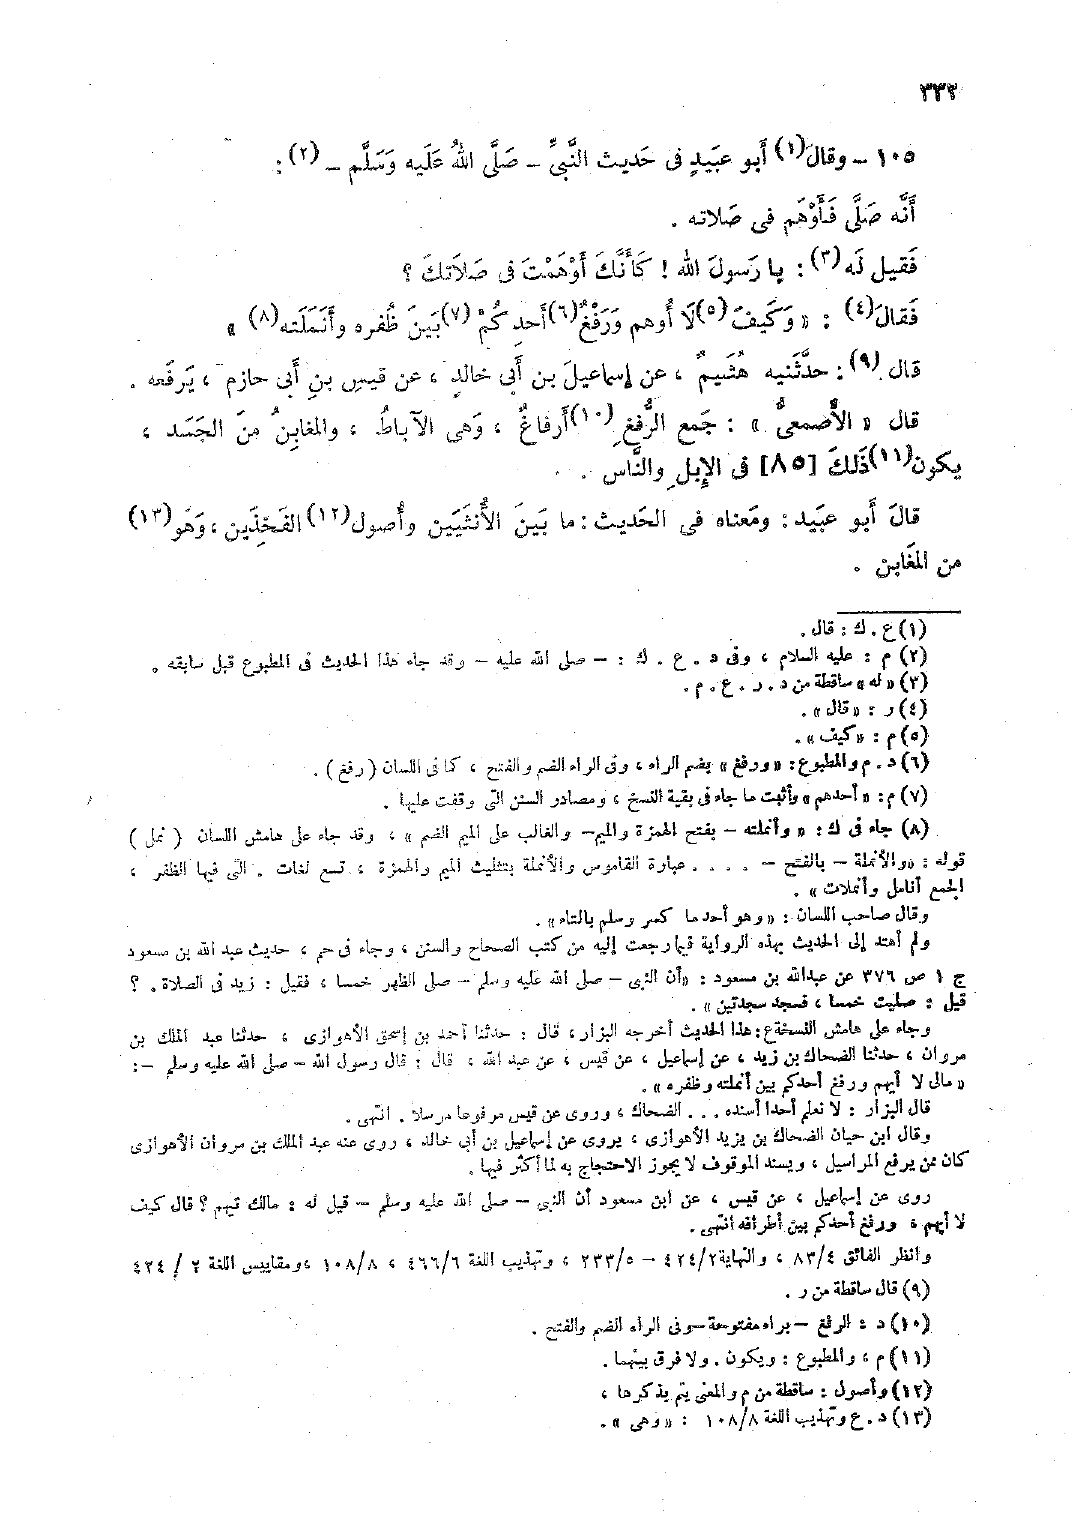 ٣٣٢
١٠٥ – وقالَ(١) أَبو عبَيدٍ فى حَديث النَّبىِّ – صَلَّى اللهُ عَلَيه وَسَلَّم – (٢) :
أَنَّه صَلَّى فَأَوْهَم فى صَلاته .
فَقيل لَه(٣) : يا رَسولَ الله ! كَأَنَّكَ أَوْهَمْتَ فى صَلَاتكَ ؟
فَقالَ(٤) : « وَكَيفَ(٥) لَا أُوهم وَرَفْغُ(٦) أَحدِكُمْ(٧) بَينَ ظُفره وأَنمَلَته(٨) »
قال (٩) : حدَّثَنيه هُشَيمٌ ، عن إسماعيلَ بن أَبى خالدٍ ، عن قيسِ بنِ أَبى حازم ، يَرفَعه .
قال « الأَصْمعىُّ » : جَمع الرُّفغِ (١٠) أَرفاغٌ ، وَهى الآباطُ ، والمغابنُ منَ الجَسَد ،
يكون(١١) ذَلكَ [٨٥] فى الإِبلِ والنَّاس .
قالَ أَبو عبَيد : ومَعناه فى الحَديث : ما بَينَ الأُنثَيَين وأُصول(١٢) الفَخِذَين ، وَهَو(١٣)
من المَغابن .
(١) ع . ك : قال .
(٢) م : عليه السلام ، وفى د . ع . ك : – صلى الله عليه – وقد جاء هذا الحديث فى المطبوع قبل سابقه .
(٣) « له » ساقطة من د . ر . ع . م .
(٤) ر : « قال » .
(٥) م : « كيف » .
(٦) د . م والمطبوع : « ورفغ » بضم الراء ، وفى الراء الضم والفتح ، كما فى اللسان ( رفغ ) .
(٧) م : « أحدهم » وأثبت ما جاء فى بقية النسخ ، ومصادر السنن التى وقفت عليها .
(٨) جاء فى ك : « وأنملته – بفتح الهمزة والميم – والغالب على الميم الضم » ، وقد جاء على هامش اللسان ( نمل )
قوله : « والأنملة – بالفتح – . . . . عبارة القاموس والأنملة بتثليث الميم والهمزة ، تسع لغات . التى فيها الظفر ،
الجمع أنامل وأنملات » .
وقال صاحب اللسان : « وهو أحد ما كسر وسلم بالتاء » .
ولم أهتد إلى الحديث بهذه الرواية فيما رجعت إليه من كتب الصحاح والسنن ، وجاء فى حم ، حديث عبد الله بن مسعود
ج ١ ص ٣٧٦ عن عبدالله بن مسعود : « أن النبى – صلى الله عليه وسلم – صلى الظهر خمسا ، فقيل : زيد فى الصلاة . ؟
قيل : صليت خمسا ، فسجد سجدتين » .
وجاء على هامش النسخة ع : هذا الحديث أخرجه البزار ، قال : حدثنا أحمد بن إسحق الأهوازى ، حدثنا عبد الملك بن
مروان ، حدثنا الضحاك بن زيد ، عن إسماعيل ، عن قيس ، عن عبد الله ، قال : قال رسول الله – صلى الله عليه وسلم – :
« مالى لا أيهم ورفغ أحدكم بين أنملته وظفره » .
قال البزار : لا نعلم أحدا أسنده . . . الضحاك ، وروى عن قيس مرفوعا مرسلا . انتهى .
وقال ابن حيان الضحاك بن يزيد الأهوازى ، يروى عن إسماعيل بن أبى خالد ، روى عنه عبد الملك بن مروان الأهوازى
كان ممن يرفع المراسيل ، ويسند الموقوف لا يجوز الاحتجاج به لما أكثر فيها .
روى عن إسماعيل ، عن قيس ، عن ابن مسعود أن النبى – صلى الله عليه وسلم – قيل له : مالك تهم ؟ قال كيف
لا أيهم ، ورفغ أحدكم بين أظرافه انتهى .
وانظر الفائق ٨٣/٤ ، والنهاية ٤٢٤/٢ – ٢٣٣/٥ ، وتهذيب اللغة ٤٦٦/٦ ، ١٠٨/٨ ، ومقاييس اللغة ٢ / ٤٢٤
(٩) قال ساقطة من ر .
(١٠) د : الرفغ – براء مفتوحة – وفى الراء الضم والفتح .
(١١) م ، والمطبوع : ويكون . ولا فرق بينهما .
(١٢) وأصول : ساقطة من م والمعنى يتم بذكرها ،
(١٣) د . ع وتهذيب اللغة ١٠٨/٨ : « وهى » .